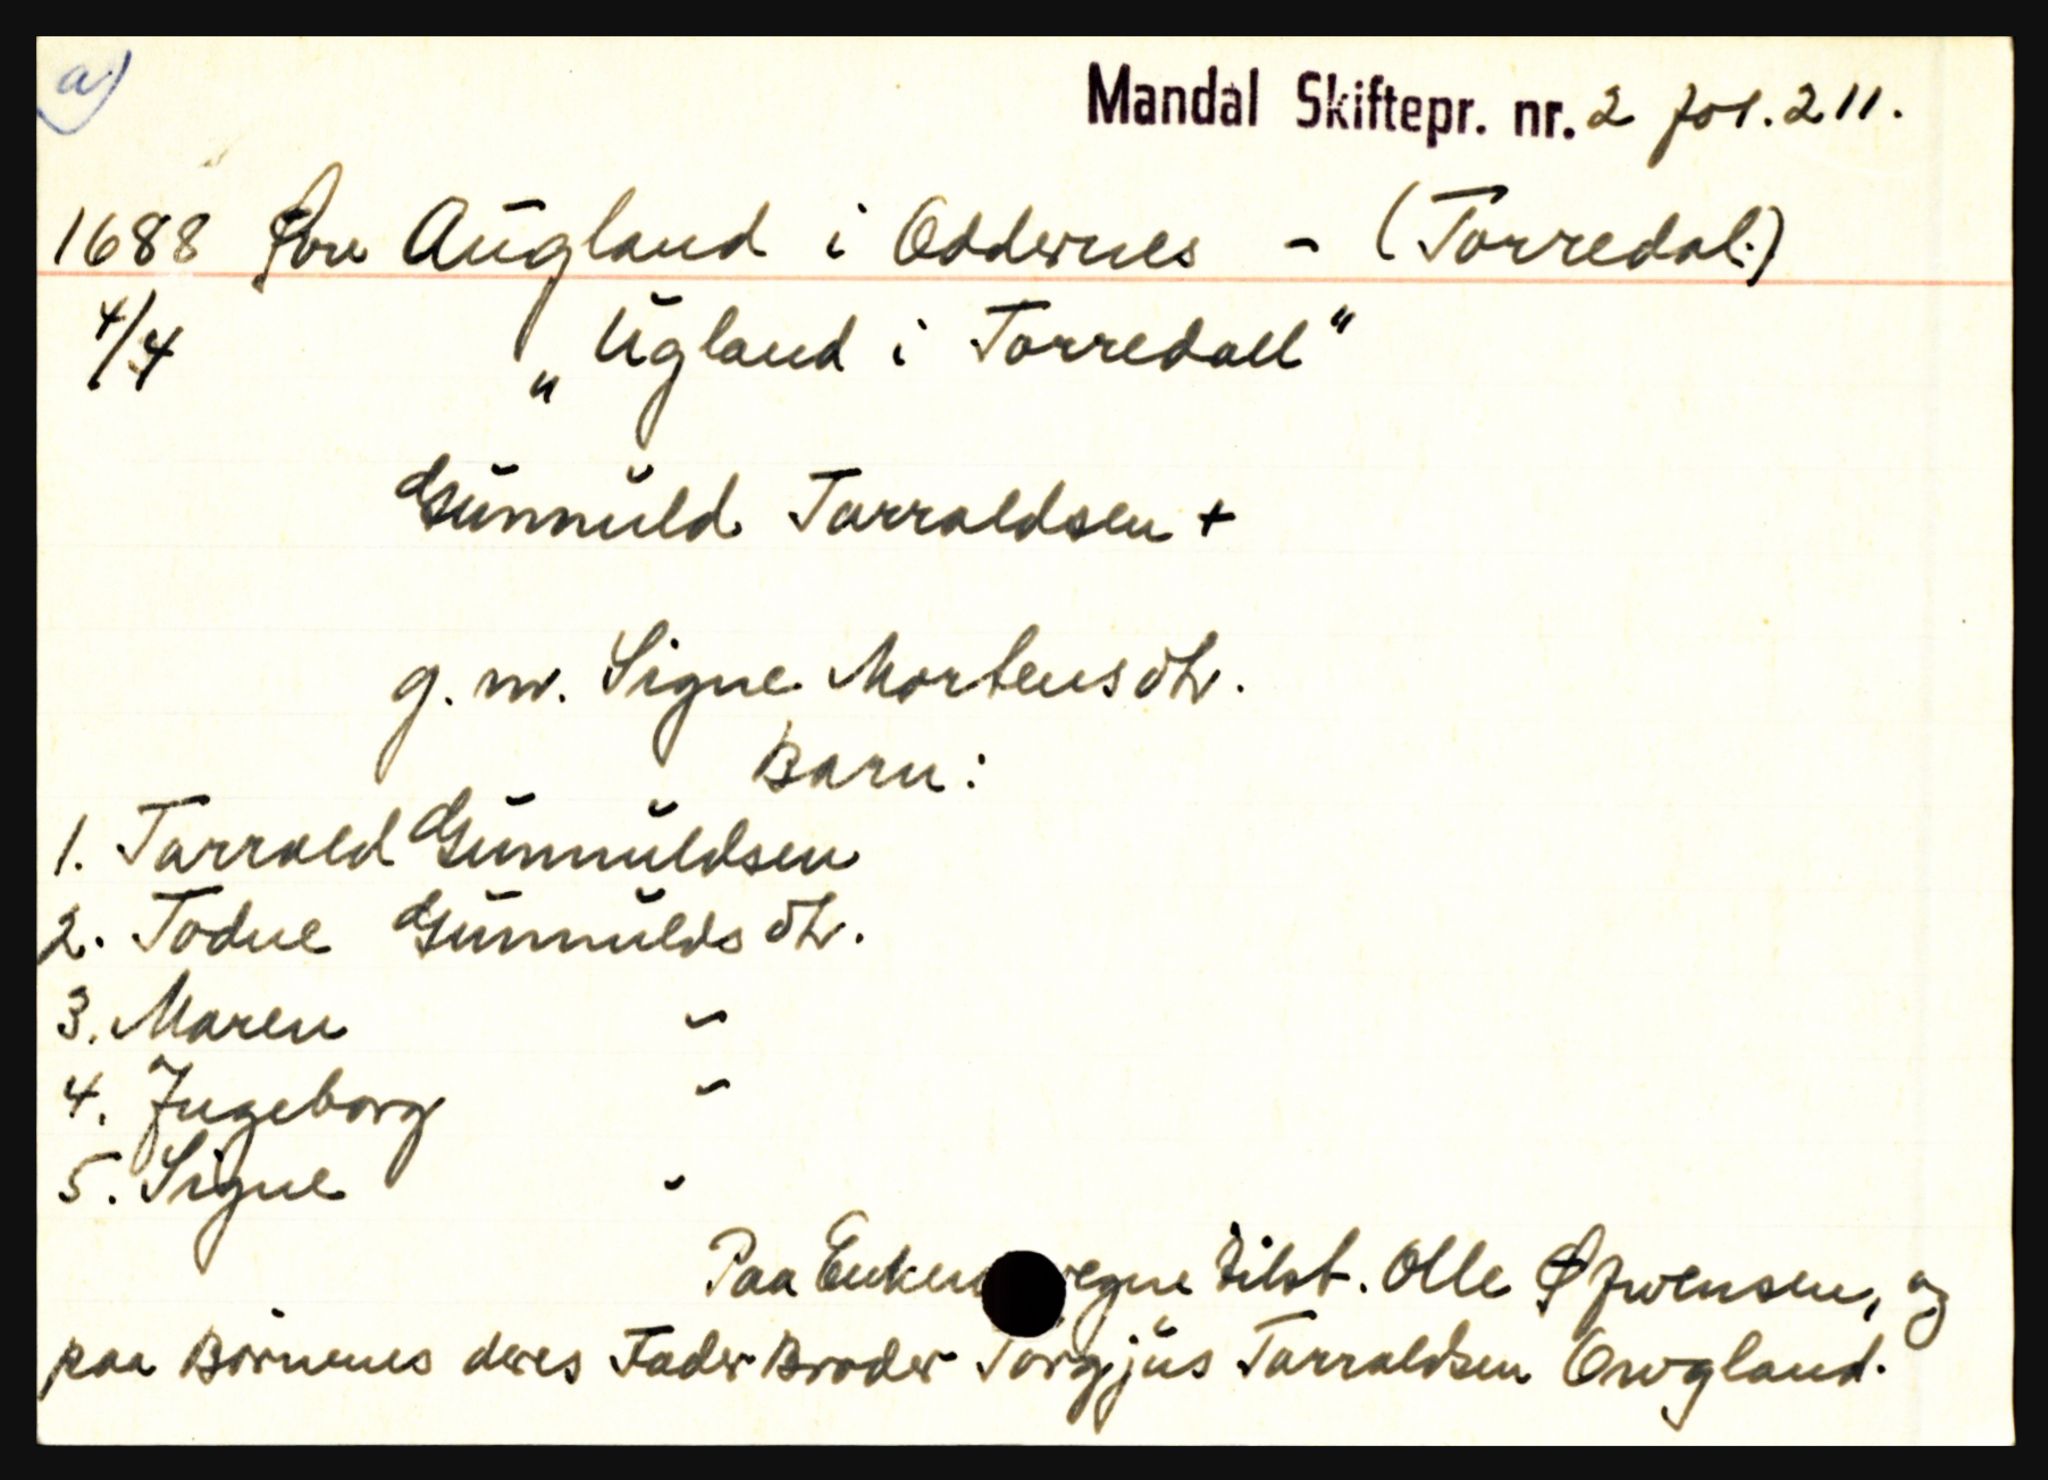 a)
Mandal Skiftepr. nr. 2 fol. 211.
1688 Øvre Augland i Oddernes - (Torredal.)
4/4 „Ugland i Torredall"
Gunnuld Tarraldsen +
g. m. Signe Mortensdtr.
Barn:
1. Tarrald Gunnuldsen
2. Todne Gunnuldsdtr.
3. Maren -
4. Ingeborg -
5. Signe -
Paa Enkens vegne tilst. Olle Øfwensen, og
paa Börnenes deres Fader Broder Torgjus Tarraldsen Owgland.